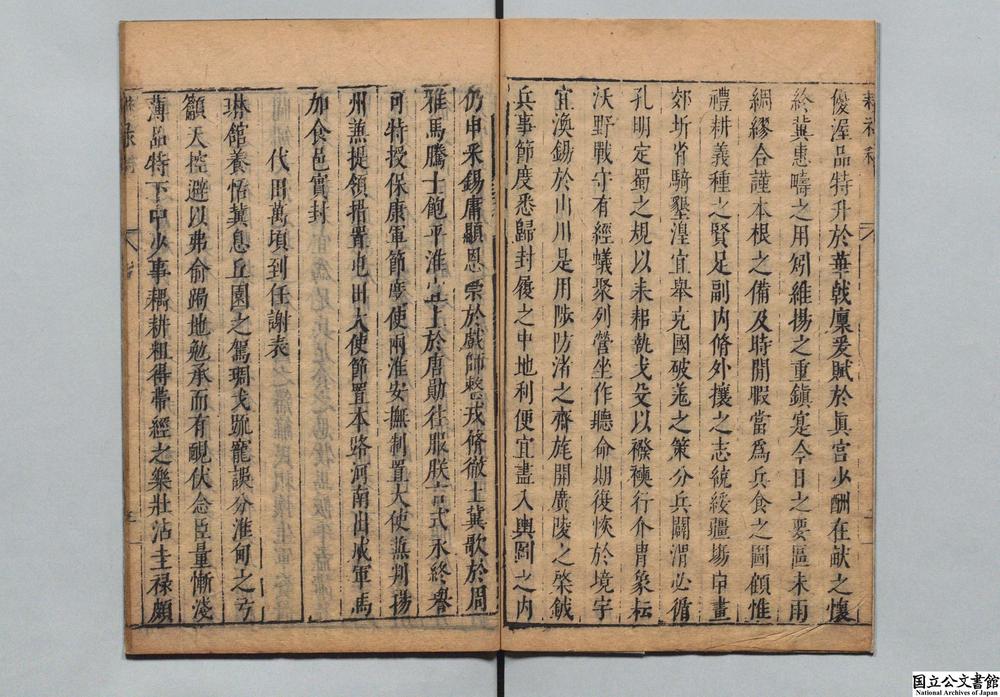 優渥品特升於華戟廩爰賦於眞宮少酬在畝之懷
終冀惠疇之用矧維揚之重鎮寔今日之要區未雨
綢繆合謹本根之備及時閒暇當爲兵食之圖顧惟
禮耕義種之賢足副内脩外攘之志統綏疆埸申畫
郊圻省騎墾湟宜舉充國破羌之策分兵闢渭必循
孔明定蜀之規以耒耜執戈殳以襏襫行介胄象耘
沃野戰守有經蟻聚列營坐作聽命期復恢於境宇
宜渙錫於山川是用陟防渚之齊旄開廣陵之棨鉞
兵事節度悉歸封履之中地利便宜盡入輿圖之内
仍申釆錫庸顯恩
於戲師整戎脩徹土冀歌於周
雅馬騰士飽平淮
上於唐勛往服朕言式永終譽
可特授保康軍節度使兩淮安撫制置大使兼判揚
州兼提領措置屯田大使節置本路河南
戍軍馬
加食邑實封
代田萬頃到任謝表
琳館養恬冀息丘園之駕琱戈疏寵誤分淮甸之
籲天控避以弗俞跼地勉承而有靦伏念臣量慚淺
薄品特下中少事耦耕粗得帶經之樂壯沾圭祿頗
国立公文書館
National Archives of Japan